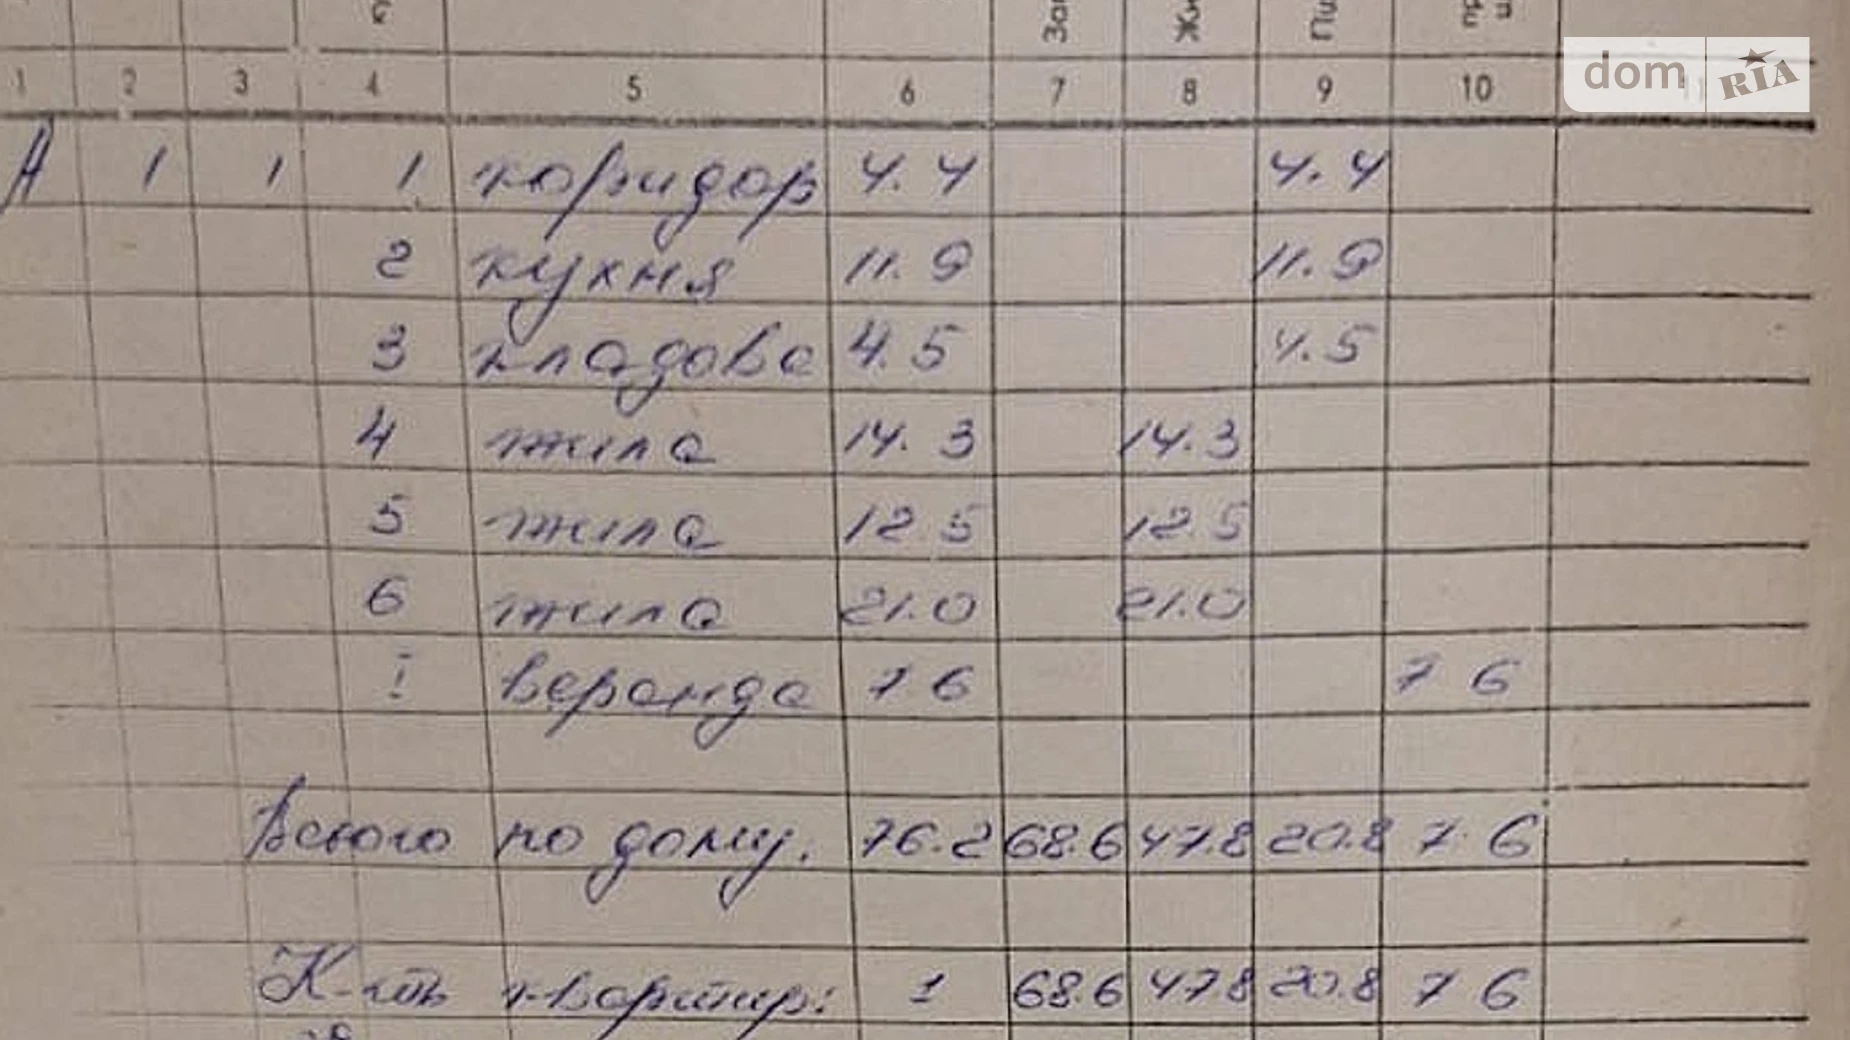 dom RIA
1 2 3 4 5 6 7 8 9 10
А 1 1 1 коридор 4.4 4.4
2 кухня 11.9 11.9
3 кладова 4.5 4.5
4 жила 14.3 14.3
5 жила 12.5 12.5
6 жила 21.0 21.0
I веранда 7 6 7 6
Всього по дому. 76.2 68.6 47.8 20.8 7.6
К-сть квартир: 1 68.6 47.8 20.8 7 6